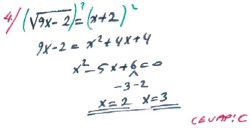 4/ (√9x-2)² = (x+2)²
9x-2 = x²+4x+4
x²-5x+6=0
-3-2
x=2 x=3
CEVAP: C